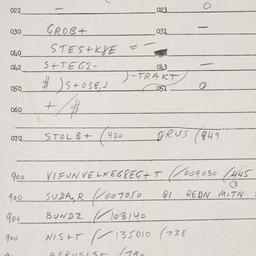 022 — 023 0
030 GROB+ 032 —
040 STES+K8E = —
042 S+TEG2- 043 —
050 #)S+OSE,J )-TRAKT 051 0
060 +/#
070 STOLB+ (420 GRUS (849
900 VIFUNVELKEG8EG+T (/009030 /445
900 SUDA,R (/007050 QI REDN MITN
900 BUNDZ (/103140
900 NIS+T (/135010 (738